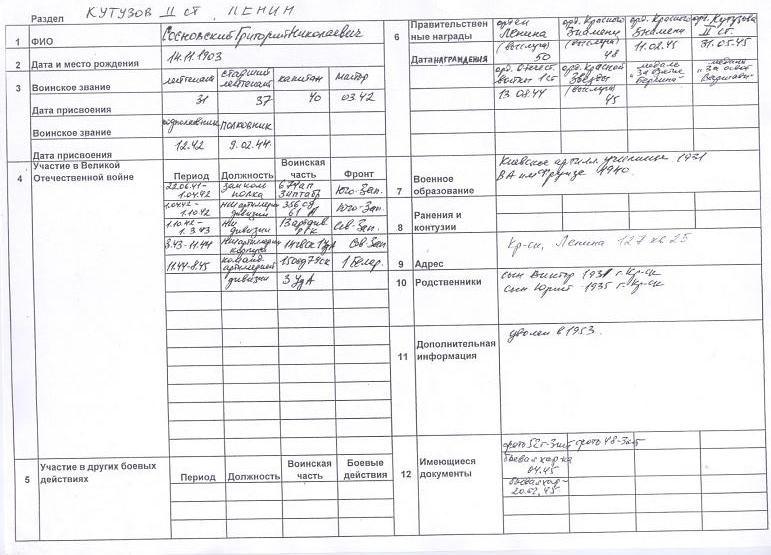 Раздел КУТУЗОВ II СТ, ЛЕНИН
1 ФИО Сосновский Григорий Николаевич
2 Дата и место рождения 14.11.1903
3 Воинское звание лейтенант старший лейтенант капитан майор
Дата присвоения 31 37 40 03.42
Воинское звание подполковник полковник
Дата присвоения 12.42 9.02.44
4 Участие в Великой Отечественной войне
Период Должность Воинская часть Фронт
22.06.41- 1.04.42 полка Юго-Зап.
1.04.42- 1.10.42 дивизии 356 сд 61 А Юго-Зап.
1.10.42- 1.3.43 дивизии РГК Сев-Зап.
3.43-11.44 корпуса Сев Зап
11.44-8.45 артиллерией дивизии 150 сд 79 ск 3 Уд А 1 Белор.
5 Участие в других боевых действиях
Период Должность Воинская часть Боевые действия
6 Правительственные награды орден Ленина (выслуга) орд. Красного Знамени (выслуга) орд. Красного Знамени орд. Кутузова II ст.
Дата НАГРАЖДЕНИЯ 50 48 11.02.45 31.05.45
орд. Отечест. войны 1 ст орд. Красной Звезды (выслуга) медаль "За взятие Берлина" медаль "За освоб Варшавы"
13.08.44 45
7 Военное образование Киевское артилл училище 1931
ВА им Фрунзе 1940.
8 Ранения и контузии
9 Адрес Кр-ск, Ленина 127 кв 25
10 Родственники сын Виктор г. Кр-ск
сын Юрий -1935 г. Кр-ск
11 Дополнительная информация уволен в 1953.
12 Имеющиеся документы фото 52г-3шт фото 48-3шт
боевая хар-ка 04.45
боевая хар- 20.02.45